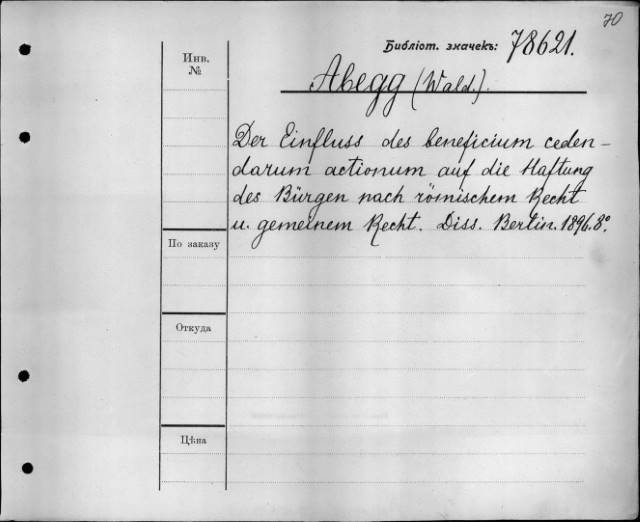 70
Библіот. значекъ: 78621.
Инв.
№
Abegg (Wald.).
Der Einfluss des beneficium ceden-
darum actionum auf die Haftung
des Bürgen nach römischem Recht
u. gemeinem Recht. Diss. Berlin. 1896. 8°.
По заказу
Откуда
Цѣна